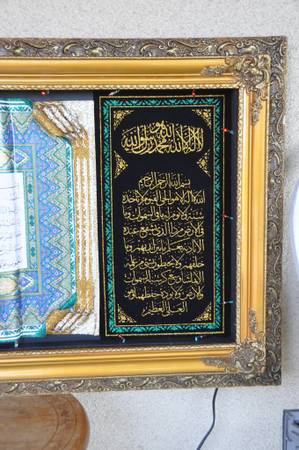 لا اله الا الله محمد رسول الله
بسم الله الرحمن الرحيم
الله لا اله الا هو الحي القيوم لا تأخذه
سنة ولا نوم له ما في السموات وما
في الارض من ذا الذي يشفع عنده
الا باذنه يعلم ما بين ايديهم وما
خلفهم ولا يحيطون بشيء من علمه
الا بما شاء وسع كرسيه السموات
والارض ولا يؤده حفظهما وهو
العلي العظيم